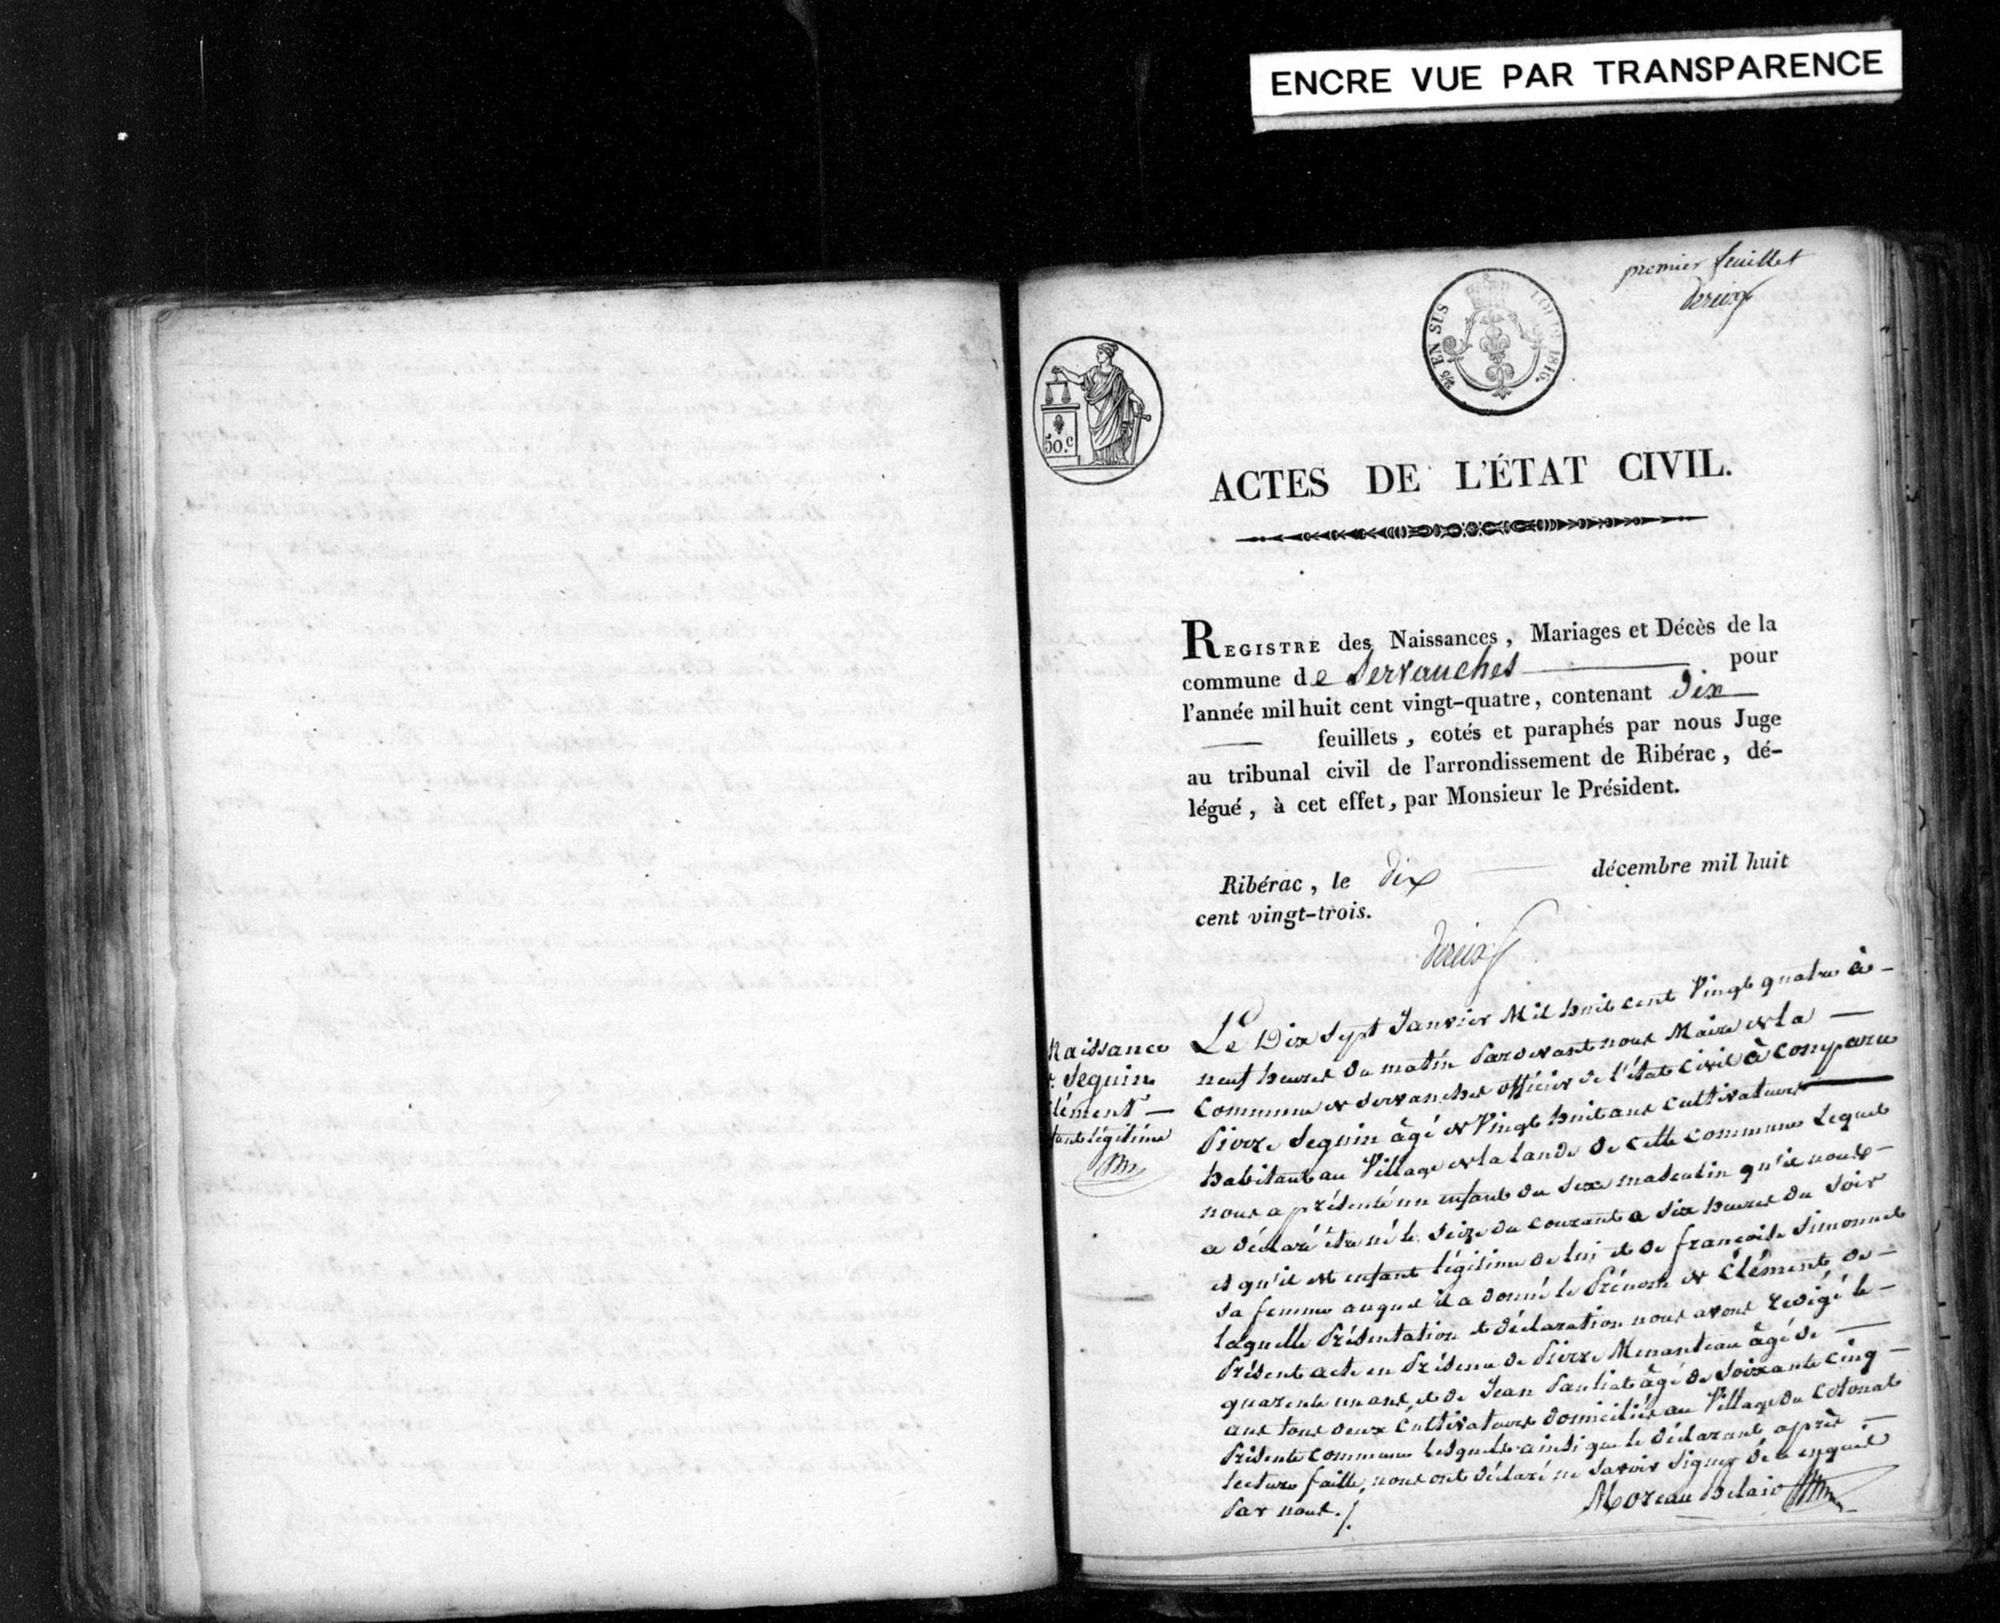 ENCRE VUE PAR TRANSPARENCE
premier feuillet
dereix
EN SUS
1816.
50.c
ACTES DE L'ÉTAT CIVIL.
REGISTRE des Naissances, Mariages et Décès de la
commune de Servanches pour
l'année mil huit cent vingt-quatre, contenant dix
feuillets, cotés et paraphés par nous Juge
au tribunal civil de l'arrondissement de Ribérac, dé-
légué, à cet effet, par Monsieur le Président.
Ribérac, le dix décembre mil huit
cent vingt-trois.
dereix
Naissance
Seguin
lément
légitime
Le Dix Sept Janvier Mil huit cent Vingt quatre à
neuf heures du matin Pardevant nous Maire de la
Commune de Servanches officier de l'état Civil à comparu
Pierre Seguin âgé de Vingt huit ans cultivateur
habitant au Village de la lande de cette commune Lequel
nous a présenté un enfant du Sexe masculin qu'il nous
a déclaré être né le Seize du courant a Six heures du Soir
et qu'il est enfant légitime de lui et de françoise Simonnet
Sa femme auquel il a donné le Prénom de Clément de
laquelle Présentation et déclaration nous avons redigé le
Présent acte en Présence de Pierre Menanteau âgé de
quarente un ans, et de Jean Pauliat âgé de Soixante cinq
ans tous deux Cultivateurs domiciliés au Village du Cotonat
Présente commune lesquels ainsi que le déclarant après
lecture faitte, nous ont déclaré ne Savoir Signer de ce enquis
Par nous ./.
Moreau Belair